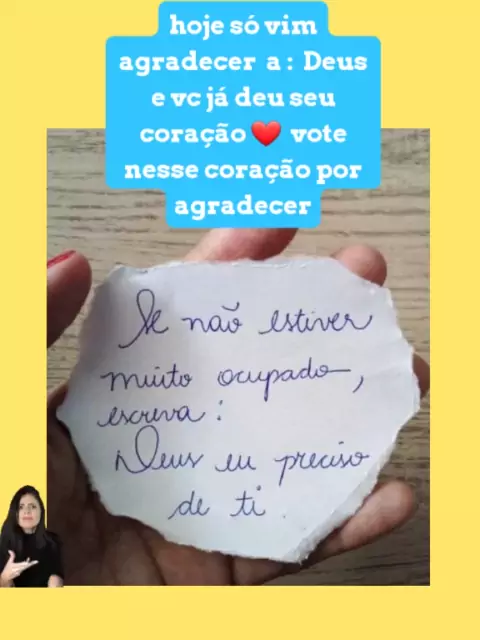 hoje só vim
agradecer a : Deus
e vc já deu seu
coração ❤️ vote
nesse coração por
agradecer
Se não estiver
muito ocupado,
escreva:
Deus eu preciso
de ti.